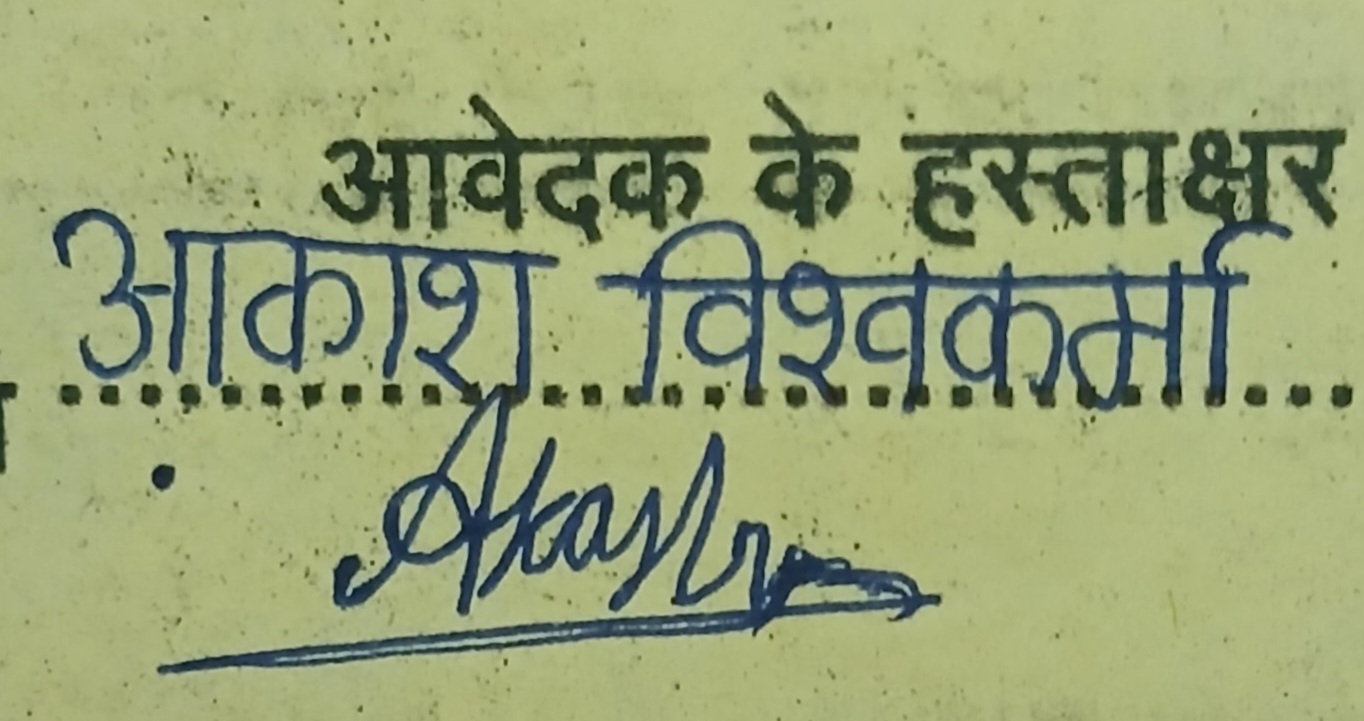 आवेदक के हस्ताक्षर
आकाश विश्वकर्मा
Akash